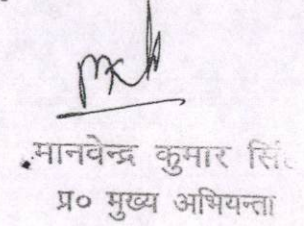 मानवेन्द्र कुमार
प्र० मुख्य अभियन्ता